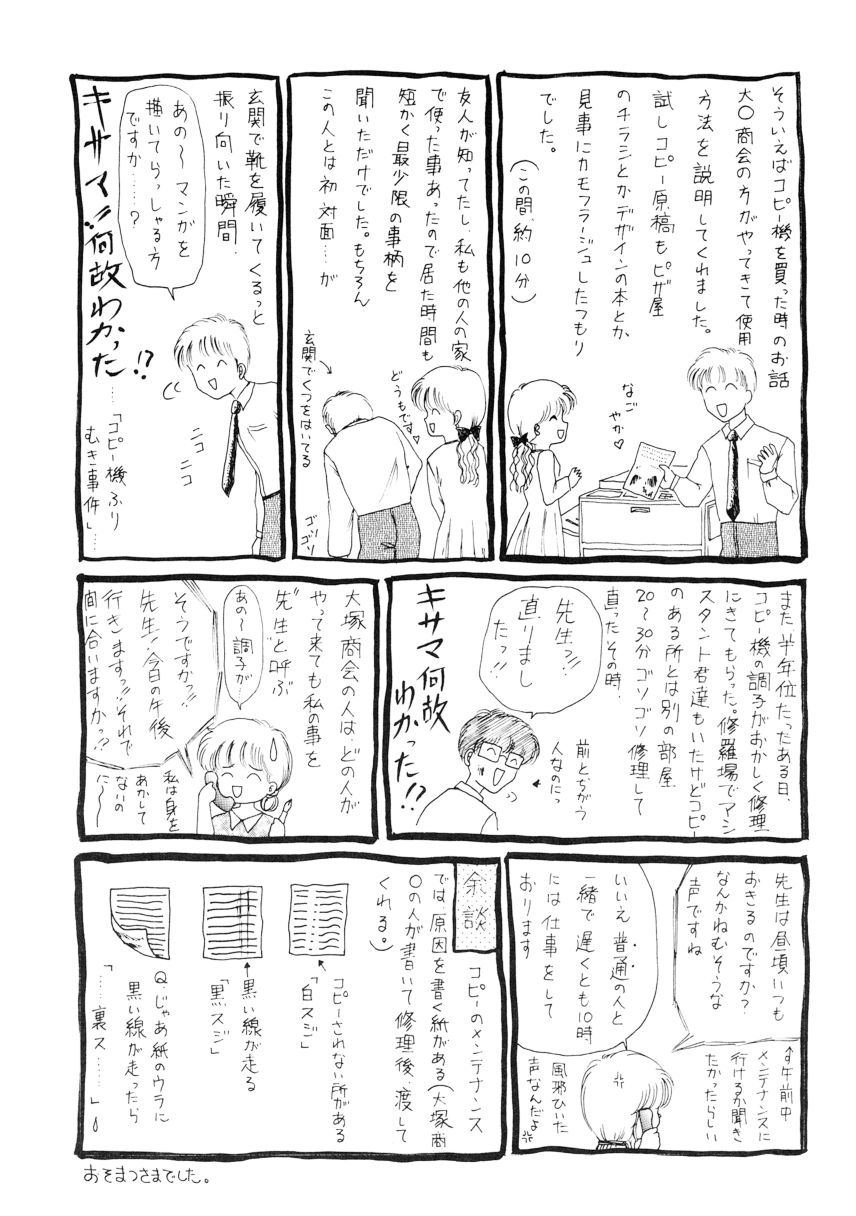 そういえばコピー機を買った時のお話
大〇商会の方がやってきて使用
方法を説明してくれました。
試しコピー原稿もピザ屋
のチラシとかデザインの本とか
見事にカモフラージュしたつもり
でした。
(この間、約10分)
なご
やか♡
友人が知ってたし、私も他の人の家
で使った事あったので居た時間も
短かく最少限の事柄を
聞いただけでした。もちろん
この人とは初対面……が
どうもです♡
玄関でくつをはいてる
ゴソ
ゴソ
玄関で靴を履いてくるっと
振り向いた瞬間、
あの〜マンガを
描いてらっしゃる方
ですか……?
キサマ!!何故わかった!?
……「コピー機ふり
むき事件」……
ニコ
ニコ
また半年位たったある日、
コピー機の調子がおかしく修理
にきてもらった。修羅場でアシ
スタント君達もいたけどコピー
のある所とは別の部屋
20〜30分ゴソゴソ修理して
直ったその時、
先生っ!!
直りまし
たっ!!
前とちがう
人なのにっ
キサマ何故
わかった!!?
大塚商会の人は、どの人が
やって来ても私の事を
"先生"と呼ぶ
あの〜調子が…
そうですかっ!!
先生!今日の午後
行きますっ!!それで
間に合いますかっ!?
私は身を
あかして
ないの
に〜〜
先生は昼頃いつも
おきるのですか?
なんかねむそうな
声ですね
↑午前中
メンテナンスに
行けるか聞き
たかったらしい
いいえ 普通の人と
一緒で遅くとも10時
には仕事をして
おります
風邪ひいた
声なんだよ
余談
コピーのメンテナンス
では、原因を書く紙がある(大塚商
〇の人が書いて修理後、渡して
くれる。)
コピーされない所がある
「白スジ」
黒い線が走る
「黒スジ」
Q.じゃあ紙のウラに
黒い線が走ったら
「……裏ス……」
おそまつさまでした。